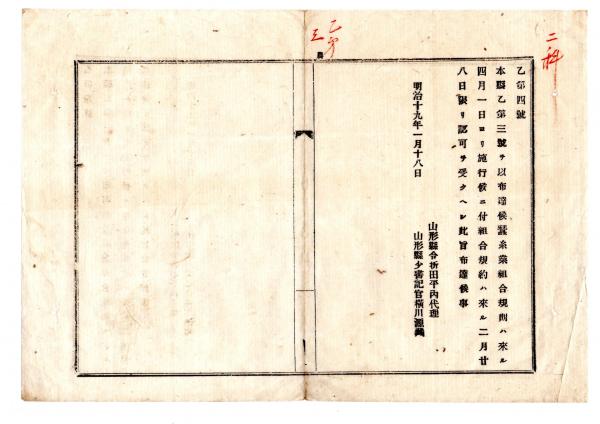 二科
乙第四號
本縣乙第三號ヲ以布達候蠶糸業組合規則ハ來ル
四月一日ヨリ施行候ニ付組合規約ハ來ル二月廿
八日限リ認可ヲ受クヘシ此旨布達候事
山形縣令折田平內代理
山形縣少書記官橫川源藏
明治十九年一月十八日